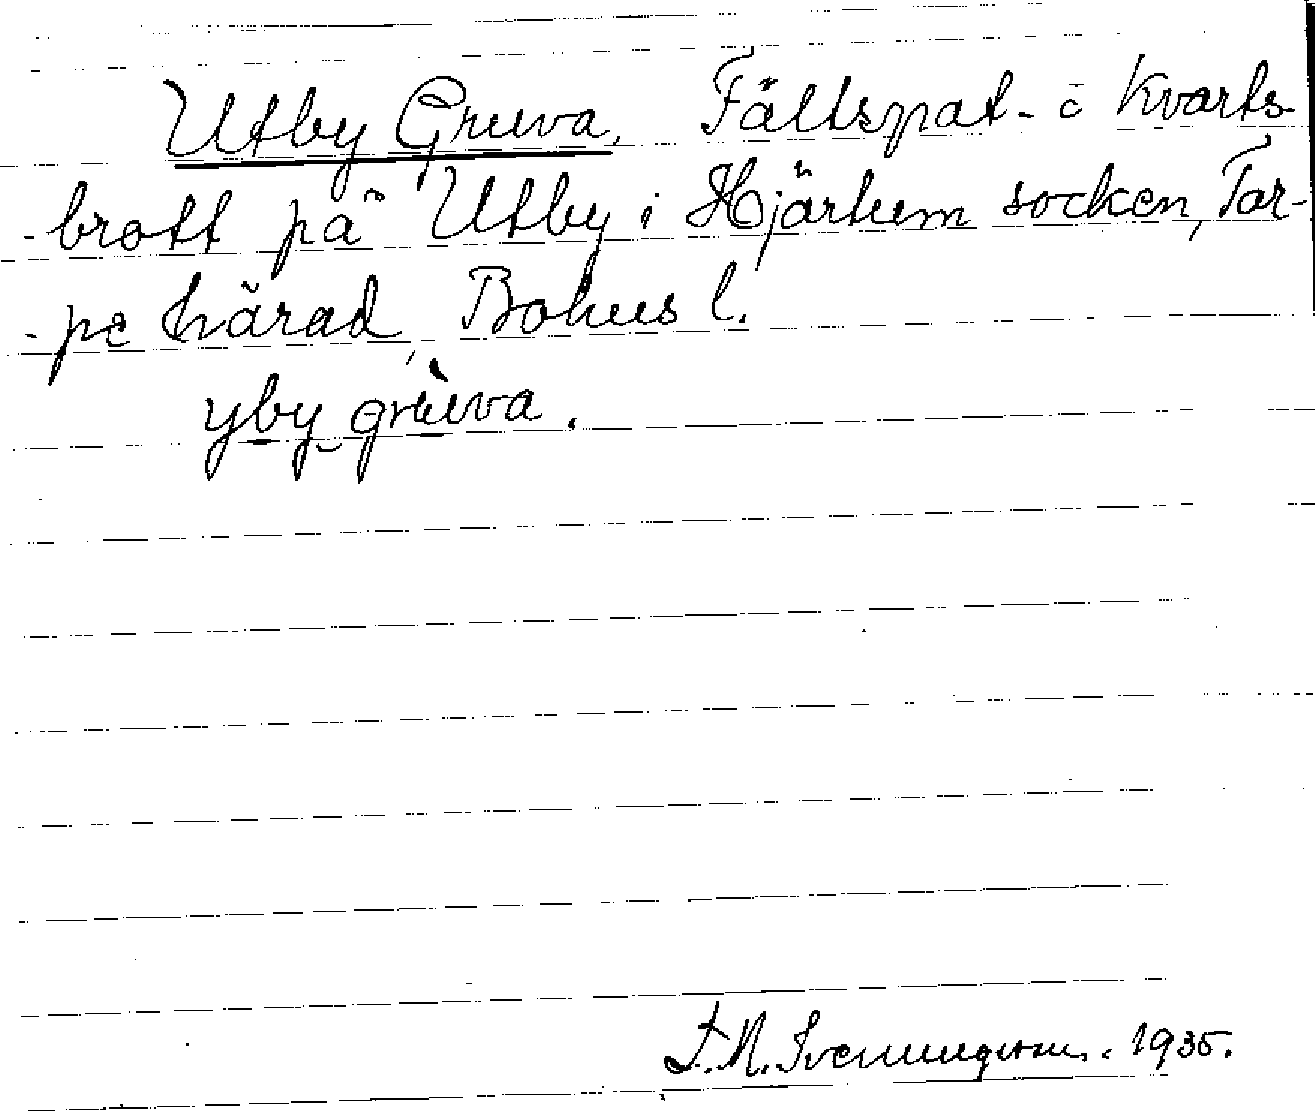 Utby Gruva, Fältspat- o Kvarts
-brott på Utby i Hjärtum socken, Tor-
-pe härad, Bohus l.
yby grùva.
J. M. Svenningson. 1935.